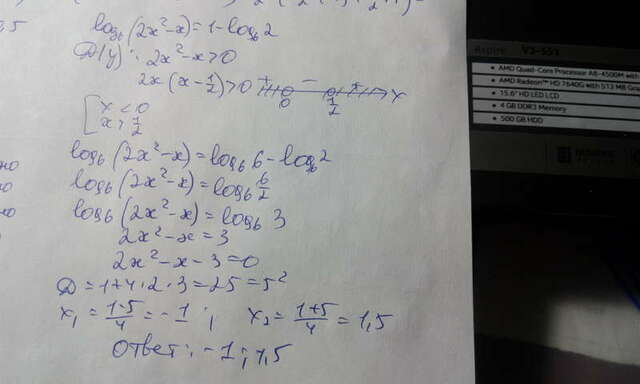 log₆(2x²-x)=1-log₆2
D(y): 2x²-x>0
2x(x-½)>0 + - + x
0 ½
[ x<0
x>½
log₆(2x²-x)=log₆6-log₆2
log₆(2x²-x)=log₆ 6/2
log₆(2x²-x)=log₆ 3
2x²-x=3
2x²-x-3=0
D=1+4·2·3=25=5²
x₁=(1-5)/4=-1; x₂=(1+5)/4=1,5
Ответ: -1; 1,5
Aspire V3-551
• AMD Quad-Core Processor A8-4500M with
• AMD Radeon™ HD 7640G with 512 MB
• 15.6" HD LED LCD
• 4 GB DDR3 Memory
• 500 GB HDD